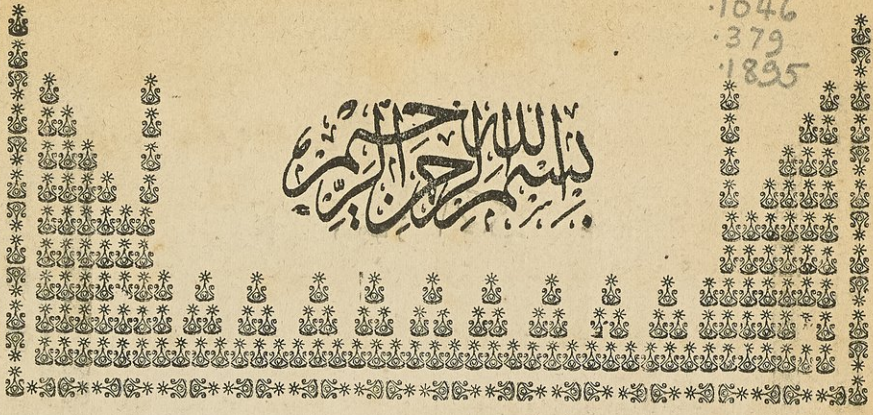 .1046
.379
.1895
بسم الله الرحمن الرحيم